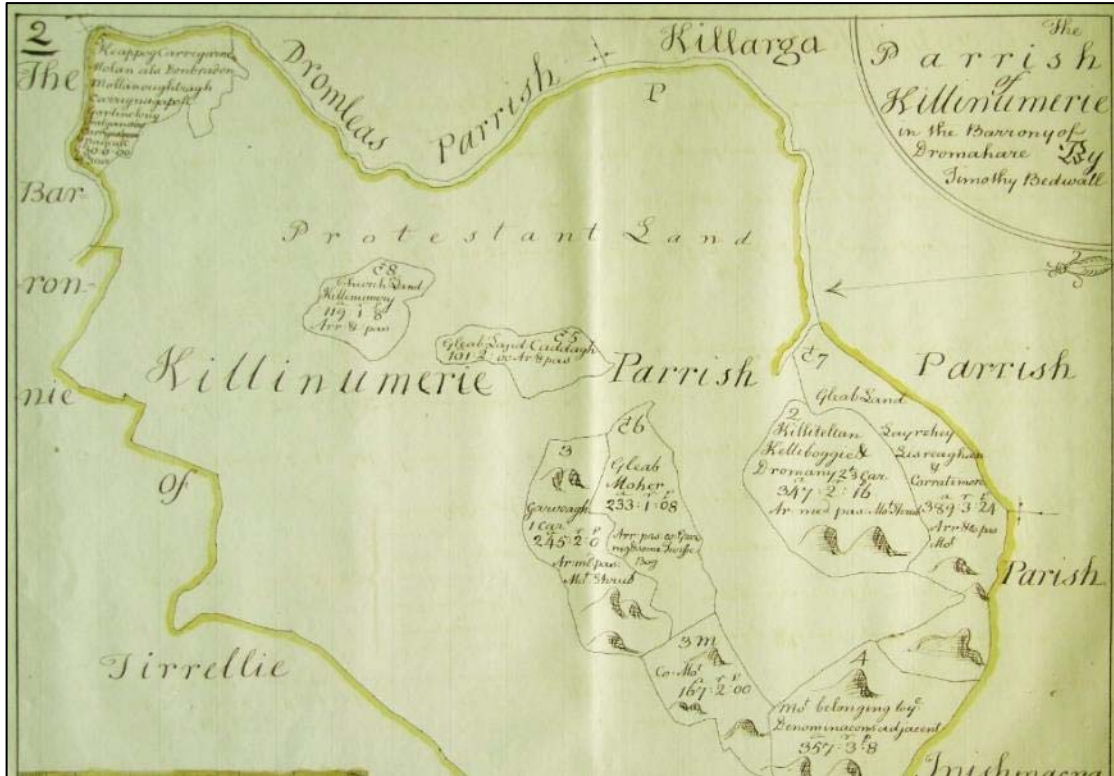 2
The
Bar-
ron-
nie
of
Tirrellie
Keappog Carregarne
Molan als Bonbradon
Mollanoughtragh
Carrignagapoll
Dromleas
Parrish
Killarga
P
The
Parrish
of
Killinumerie
in the Barrony of
Dromahare By
Timothy Bedwall
Protestant Land
C8
Church Land
Killinumery
a r p
119 : 1 : 8
Arr & pas
C5
Gleab Land Caddagh
101 : 2 : 00 Ar & pas
Killinumerie Parrish
C7
Gleab Land
Parrish
2
Killitellan
Kelliboggie &
Dromany 2 2/3 Car
a r p
347 : 2 : 16
Ar: med pas: Mot Shrub
Layrehey
Lisreaghan
&
Carratimore
a r p
389 : 3 : 24
Arr & pas
Mot
Parish
C6
Gleab
Moher
a r p
233 : 1 : 08
Arr: pas:
Bog
3
Garvoagh
1 Car
a r p
245 : 2 : 0
Ar: mt pas:
Mot Shrub
3 m
Co: Mot
a r p
167 : 2 : 00
4
Mot belonging to ye
Denominacons adjacent
a r p
357 : 3 : 8
Inishmagra